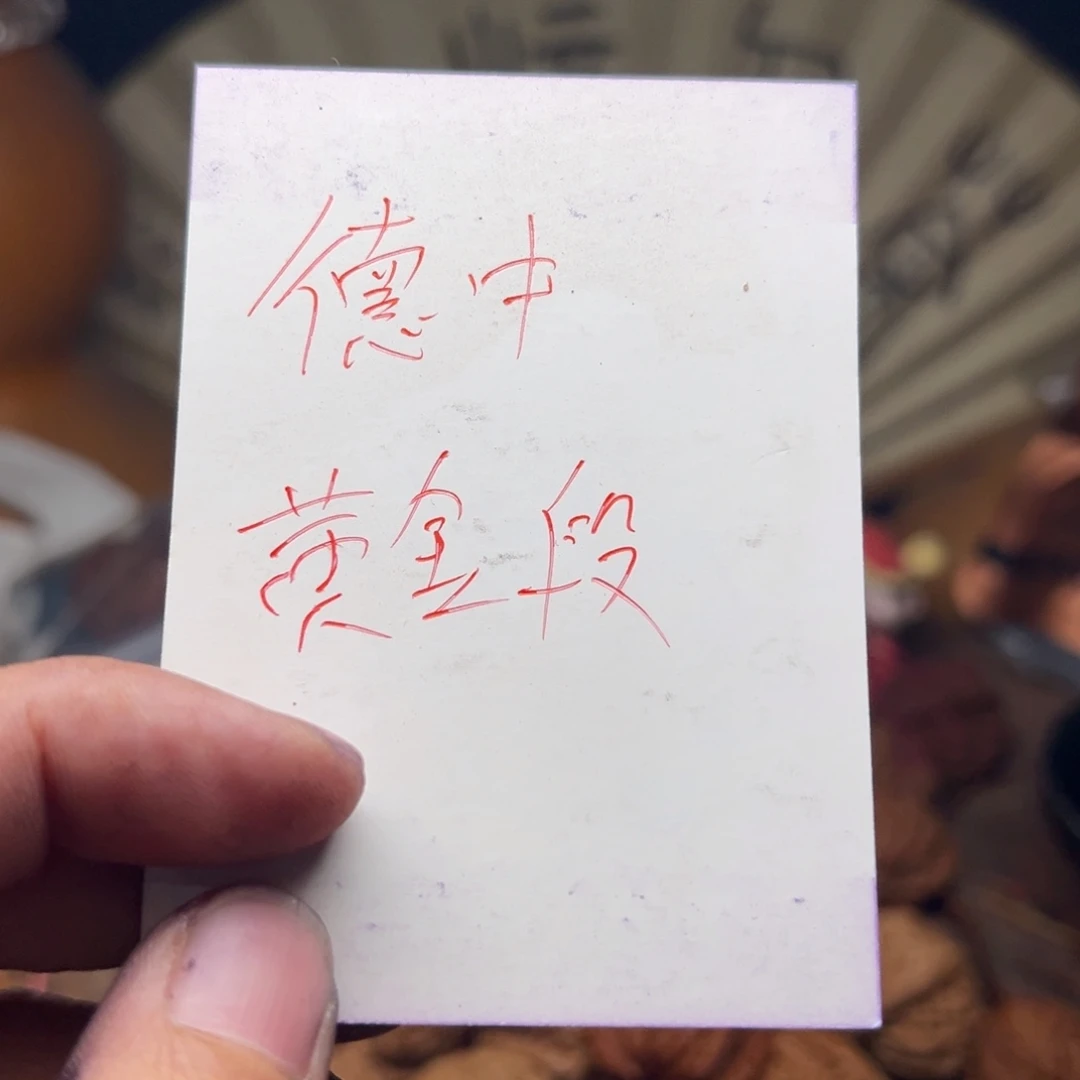 德中
黄金段